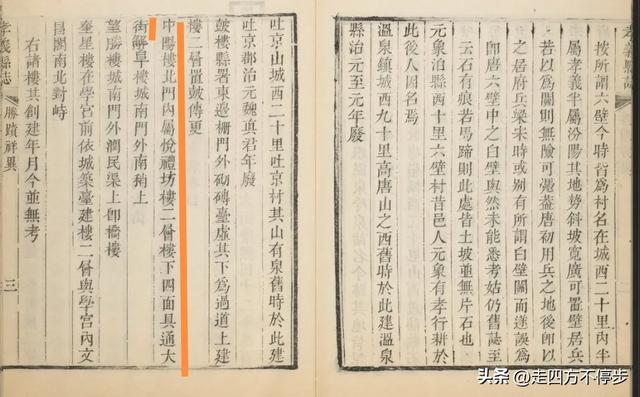 按所謂六壁今時皆爲村名在城西二十里內半
屬孝義半屬汾陽其地勢斜坡寬廣可置壁居兵
若以爲關則無險可憑葢唐初用兵之地後卽以
之居府兵梁宋時或别有所謂白壁關而遂誤爲
卽唐六壁中之白壁與然未能悉考姑仍舊誌至
云石有痕若馬蹄則此處昔土坡並無片石也
元象泊縣西十里六壁村昔邑人元象有孝行耕於
此後人因名焉
溫泉鎮城西九十里高唐山之西舊時於此建溫泉
縣治元至元年廢
吐京山城西二十里吐京村其山有泉舊時於此建
吐京郡治元魏眞君年廢
鼓樓縣署東邊柵門外砌磚臺虛其下爲過道上建
樓二層置鼓傳更
中陽樓北門內屬悅禮坊樓二層樓下四面具通大
街解阜樓城南門外南梢上
望勝樓城南門外潤民渠上卽橋樓
奎星樓在學宮前依城築臺建樓二層與學宮內文
昌閣南北對峙
右諸樓其創建年月今並無考
孝義縣志
勝蹟祥異
三
头条 @走四方不停步